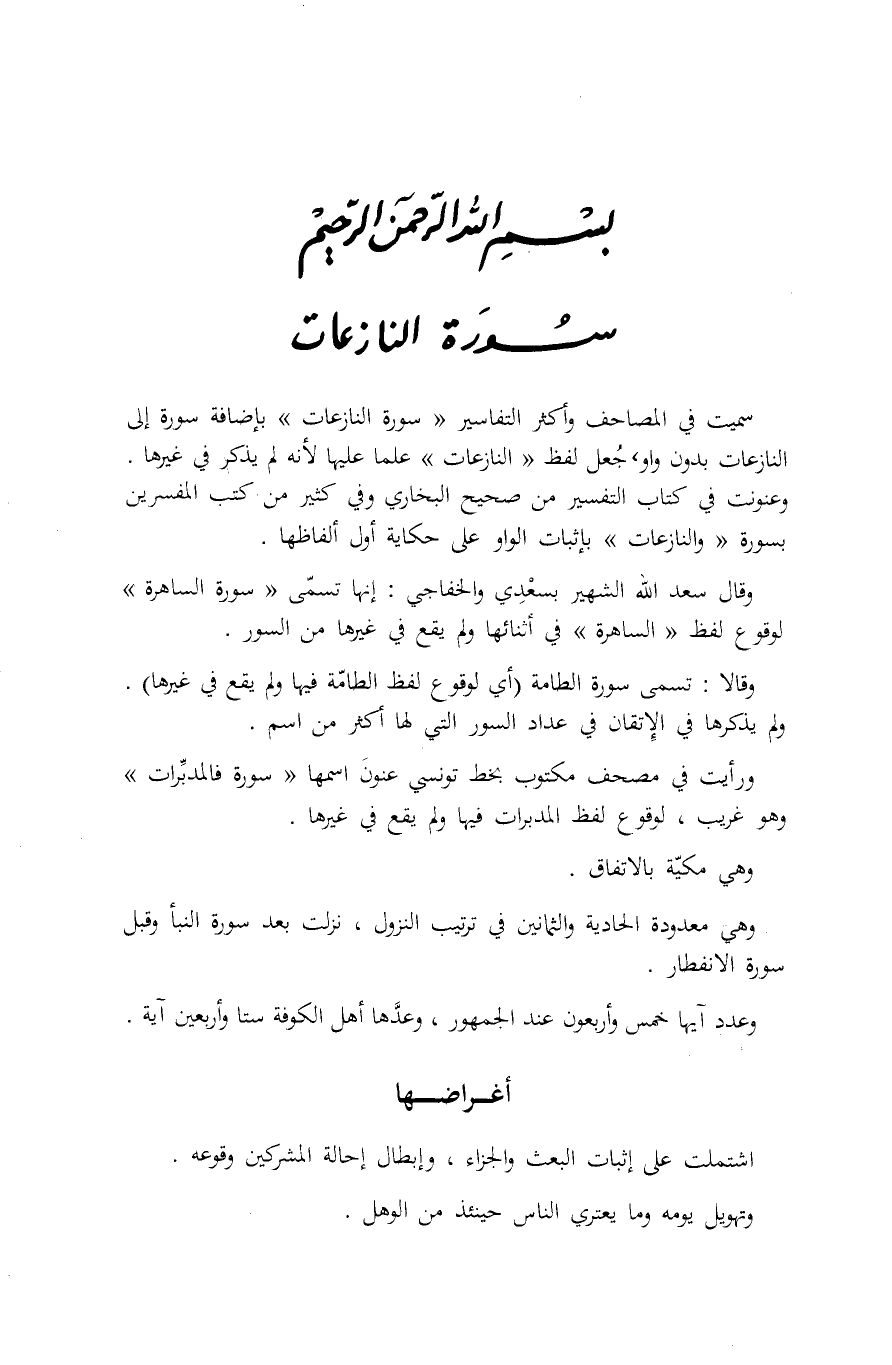 بسم الله الرحمن الرحيم
سُورَة النازعات
سميت في المصاحف وأكثر التفاسير « سورة النازعات » بإضافة سورة إلى
النازعات بدون واو، جُعل لفظ « النازعات » علما عليها لأنه لم يذكر في غيرها .
وعنونت في كتاب التفسير من صحيح البخاري وفي كثير من كتب المفسرين
بسورة « والنازعات » بإثبات الواو على حكاية أول ألفاظها .
وقال سعد الله الشهير بسعْدِي والخفاجي : إنها تسمّى « سورة الساهرة »
لوقوع لفظ « الساهرة » في أثنائها ولم يقع في غيرها من السور .
وقالا : تسمى سورة الطامة (أي لوقوع لفظ الطامّة فيها ولم يقع في غيرها) .
ولم يذكرها في الإِتقان في عداد السور التي لها أكثر من اسم .
ورأيت في مصحف مكتوب بخط تونسي عنونَ اسمها « سورة فالمدبِّرات »
وهو غريب ، لوقوع لفظ المدبرات فيها ولم يقع في غيرها .
وهي مكيّة بالاتفاق .
وهي معدودة الحادية والثمانين في ترتيب النزول ، نزلت بعد سورة النبأ وقبل
سورة الانفطار .
وعدد آيها خمس وأربعون عند الجمهور ، وعدَّها أهل الكوفة ستا وأربعين آية .
أغـراضـها
اشتملت على إثبات البعث والجزاء ، وإبطال إحالة المشركين وقوعه .
وتهويل يومه وما يعتري الناس حينئذ من الوهل .